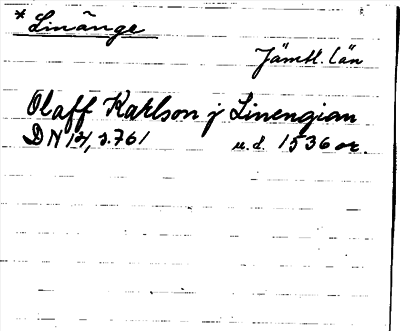 * Linänge
Jämtl. län
Olaff Karlson j Linengian
DN 14, s. 761 u. d. 1536 or.